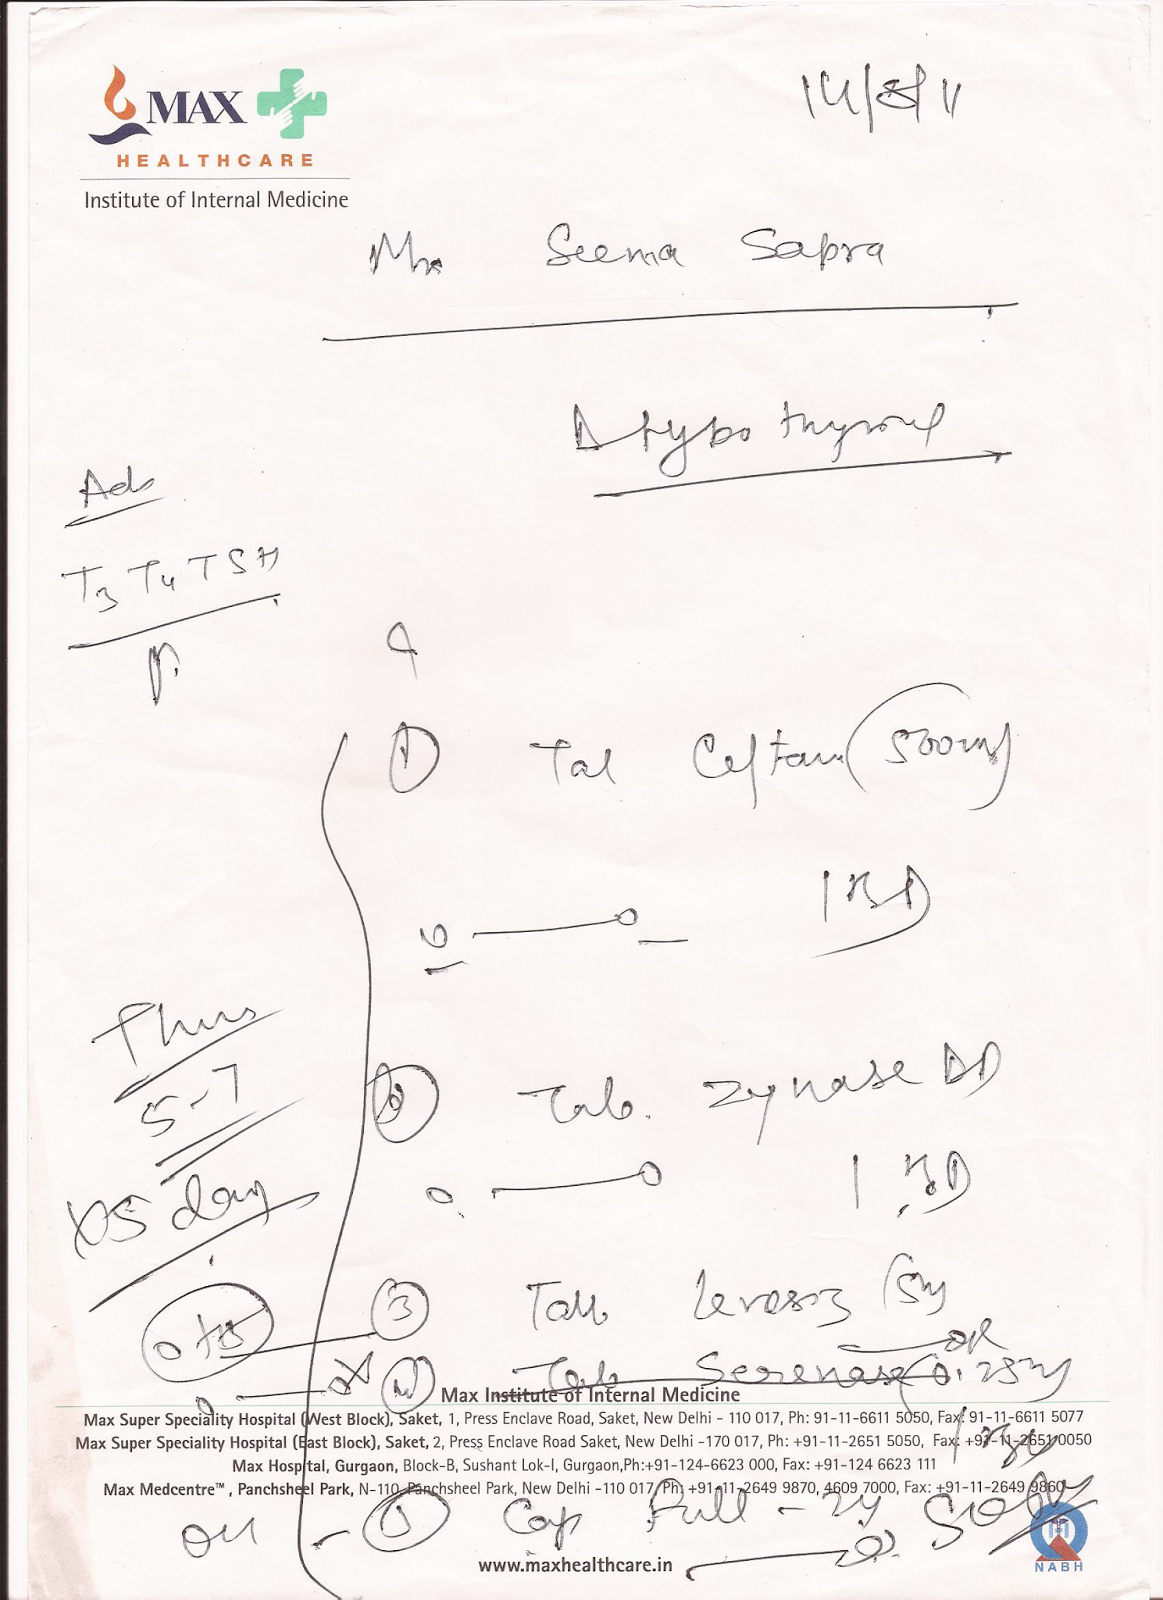 MAX
HEALTHCARE
Institute of Internal Medicine
14/8/11
Seema Sapra
Hypothyroid
Adv
T3 T4 TSH
1 Tab Ceftum (500mg)
1 BD
Thurs
5-7
2 Tab. Zynase DD
1 BD
x5 day
3 Tab (5mg
4 Tab Serenase (0.25mg)
Max Institute of Internal Medicine
Max Super Speciality Hospital (West Block), Saket, 1, Press Enclave Road, Saket, New Delhi - 110 017, Ph: 91-11-6611 5050, Fax: 91-11-6611 5077
Max Super Speciality Hospital (East Block), Saket, 2, Press Enclave Road Saket, New Delhi -170 017, Ph: +91-11-2651 5050, Fax: +91-11-2651 0050
Max Hospital, Gurgaon, Block-B, Sushant Lok-I, Gurgaon,Ph:+91-124-6623 000, Fax: +91-124 6623 111
Max Medcentre™, Panchsheel Park, N-110, Panchsheel Park, New Delhi -110 017, Ph: +91-11-2649 9870, 4609 7000, Fax: +91-11-2649 9860
5 Cap
www.maxhealthcare.in
NABH